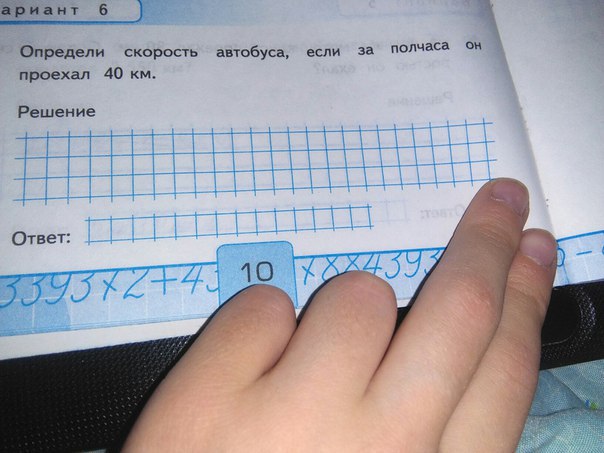 ариант 6
Определи скорость автобуса, если за полчаса он
проехал 40 км.
Решение
Ответ:
3393×2+43
10
×884393